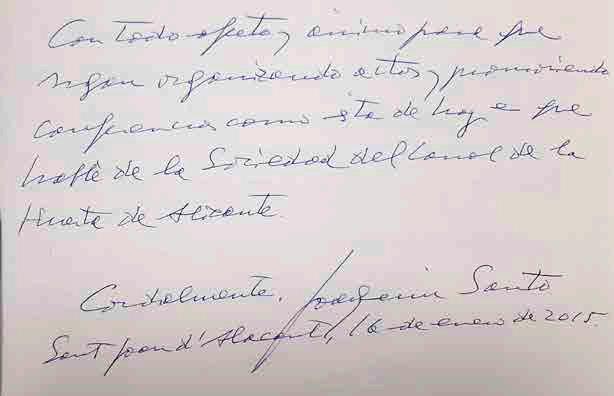 Con todo afecto y ánimo para que
sigan organizando actos y promoviendo
conferencias como esta de hoy e que
hablé de la Sociedad del Canal de la
Huerta de Alicante.
Cordialmente. Joaquín Santo
Sant Joan d'Alacant, 16 de enero de 2015.